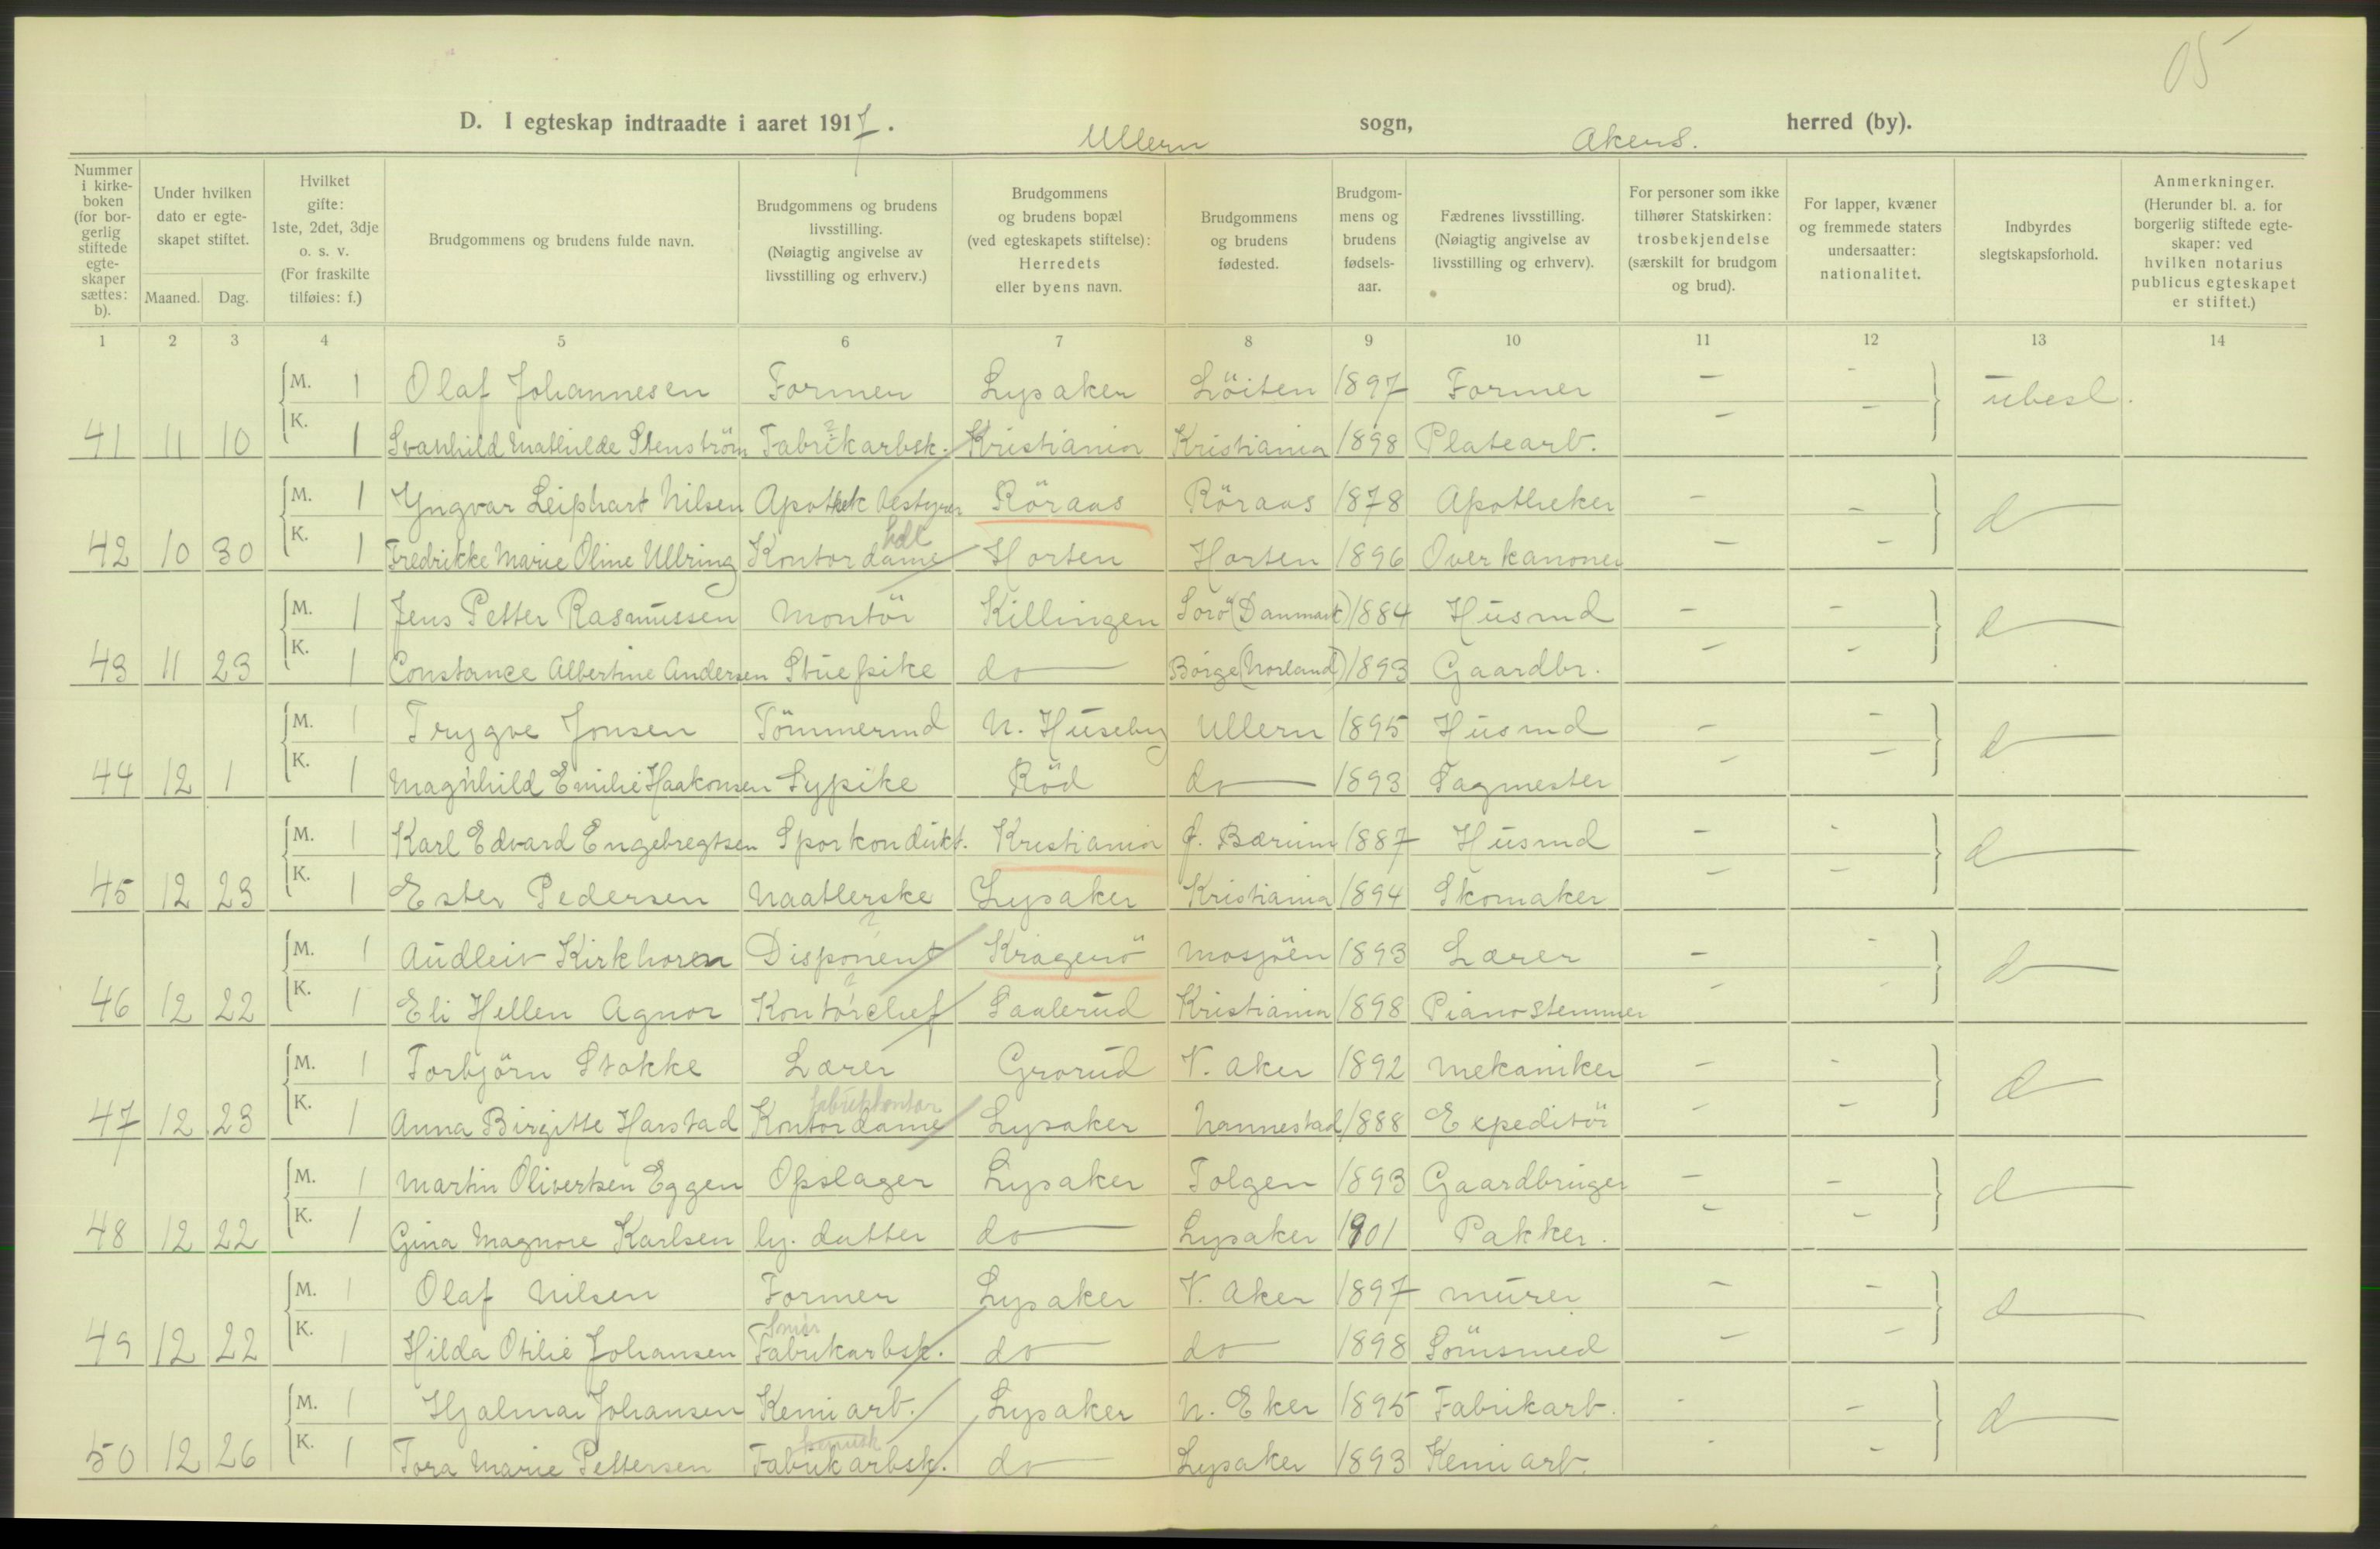 05
D. I egteskap indtraadte i aaret 1917. Ullern sogn, Akers. herred (by).
Nummer i kirkeboken (for borgerlig stiftede egteskaper sættes: b).
Under hvilken dato er egteskapet stiftet.
Maaned. Dag.
Hvilket gifte: 1ste, 2det, 3dje o. s. v. (For fraskilte tilføies: f.)
Brudgommens og brudens fulde navn.
Brudgommens og brudens livsstilling. (Nøiagtig angivelse av livsstilling og erhverv.)
Brudgommens og brudens bopæl (ved egteskapets stiftelse): Herredets eller byens navn.
Brudgommens og brudens fødested.
Brudgommens og brudens fødselsaar.
Fædrenes livsstilling. (Nøiagtig angivelse av livsstilling og erhverv).
For personer som ikke tilhører Statskirken: trosbekjendelse (særskilt for brudgom og brud).
For lapper, kvæner og fremmede staters undersaatter: nationalitet.
Indbyrdes slegtskapsforhold.
Anmerkninger. (Herunder bl. a. for borgerlig stiftede egteskaper: ved hvilken notarius publicus egteskapet er stiftet.)
1 2 3 4 5 6 7 8 9 10 11 12 13 14
M. 1 Olaf Johannesen Former Lysaker Löiten 1897 Former - - ubesl.
41 11 10 K. 1 Svanhild Mathilde Stenström Fabrikarbsk. Kristiania Kristiania 1898 Platearb. - -
M. 1 Yngvar Leiphart Nilsen Apothek bestyrer Röraas Röraas 1878 Apotheker - - d
hdl
42 10 30 K. 1 Fredrikke Marie Oline Ullring Kontordame Horten Horten 1896 Overkanoner - -
M. 1 Jens Petter Rasmussen Montör Killingen Sorö (Danmark) 1884 Husmd - - d
43 11 23 K. 1 Constance Albertine Andersen Stuepike do Borge (Norland) 1893 Gaardbr. - -
M. 1 Trygve Jonsen Tömmermd N. Huseby Ullern 1895 Husmd - - d
44 12 1 K. 1 Magnhild Emilie Haakonsen Sypike Röd do 1893 Sagmester - -
M. 1 Karl Edvard Engebregtsen Sporkondukt. Kristiania Ö. Bærum 1887 Husmd - - d
45 12 23 K. 1 Ester Pedersen Naatlerske Lysaker Kristiania 1894 Skomaker - -
M. 1 Audleiv Kirkhoren Disponent Kragerö Mosjöen 1893 Lærer - - d
46 12 22 K. 1 Eli Hellen Agnor Kontorchef Saalerud Kristiania 1898 Pianostemmer - -
M. 1 Torbjörn Stokke Lærer Grorud V. Aker 1892 Mekaniker - - d
fabrikkontor
47 12 23 K. 1 Anna Birgitte Harstad Kontordame Lysaker Nannestad 1888 Expeditör - -
M. 1 Martin Olivertsen Eggen Opslager Lysaker Tolgen 1893 Gaardbruger - - d
48 12 22 K. 1 Gina Magnore Karlsen hj. datter do Lysaker 1901 Pakker. - -
M. 1 Olaf Nilsen Former Lysaker V. Aker 1897 Murer - - d
49 12 22 K. 1 Hilda Otilie Johansen Fabrikarbsk. do do 1898 Sömsmed - -
M. 1 Hjalmar Johansen Kemiarb. Lysaker N. Eker 1895 Fabrikarb. - - d
kemisk
50 12 26 K. 1 Tora Marie Pettersen Fabrikarbsk. do Lysaker 1893 Kemiarb. - -